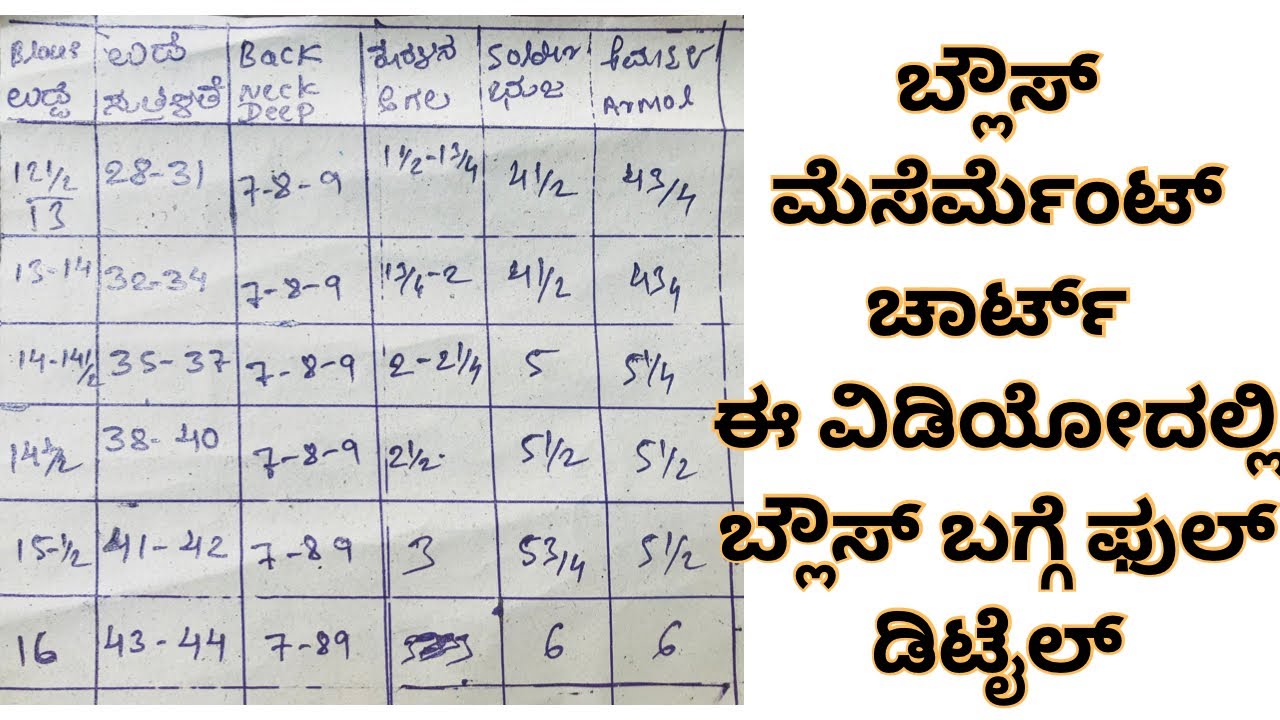 Blous ಉಡೆ Back ಕೊರಳಿನ Soldor ಆರ್ಮಲ್
ಉದ್ದ ಸುತ್ತಳತೆ Neck Deep ಅಗಲ ಭುಜ ArMol
12 1/2 13 28-31 7-8-9 1 1/2-1 3/4 4 1/2 4 3/4
13-14 32-34 7-8-9 1 3/4-2 4 1/2 4 3/4
14-14 1/2 35-37 7-8-9 2-2 1/4 5 5 1/4
14 1/2 38-40 7-8-9 2 1/2 5 1/2 5 1/2
15-1/2 41-42 7-89 3 5 3/4 5 1/2
16 43-44 7-89 6 6
ಬ್ಲೌಸ್
ಮೆಸೆರ್ಮೆಂಟ್
ಚಾರ್ಟ್
ಈ ವಿಡಿಯೋದಲ್ಲಿ
ಬ್ಲೌಸ್ ಬಗ್ಗೆ ಫುಲ್
ಡಿಟೈಲ್